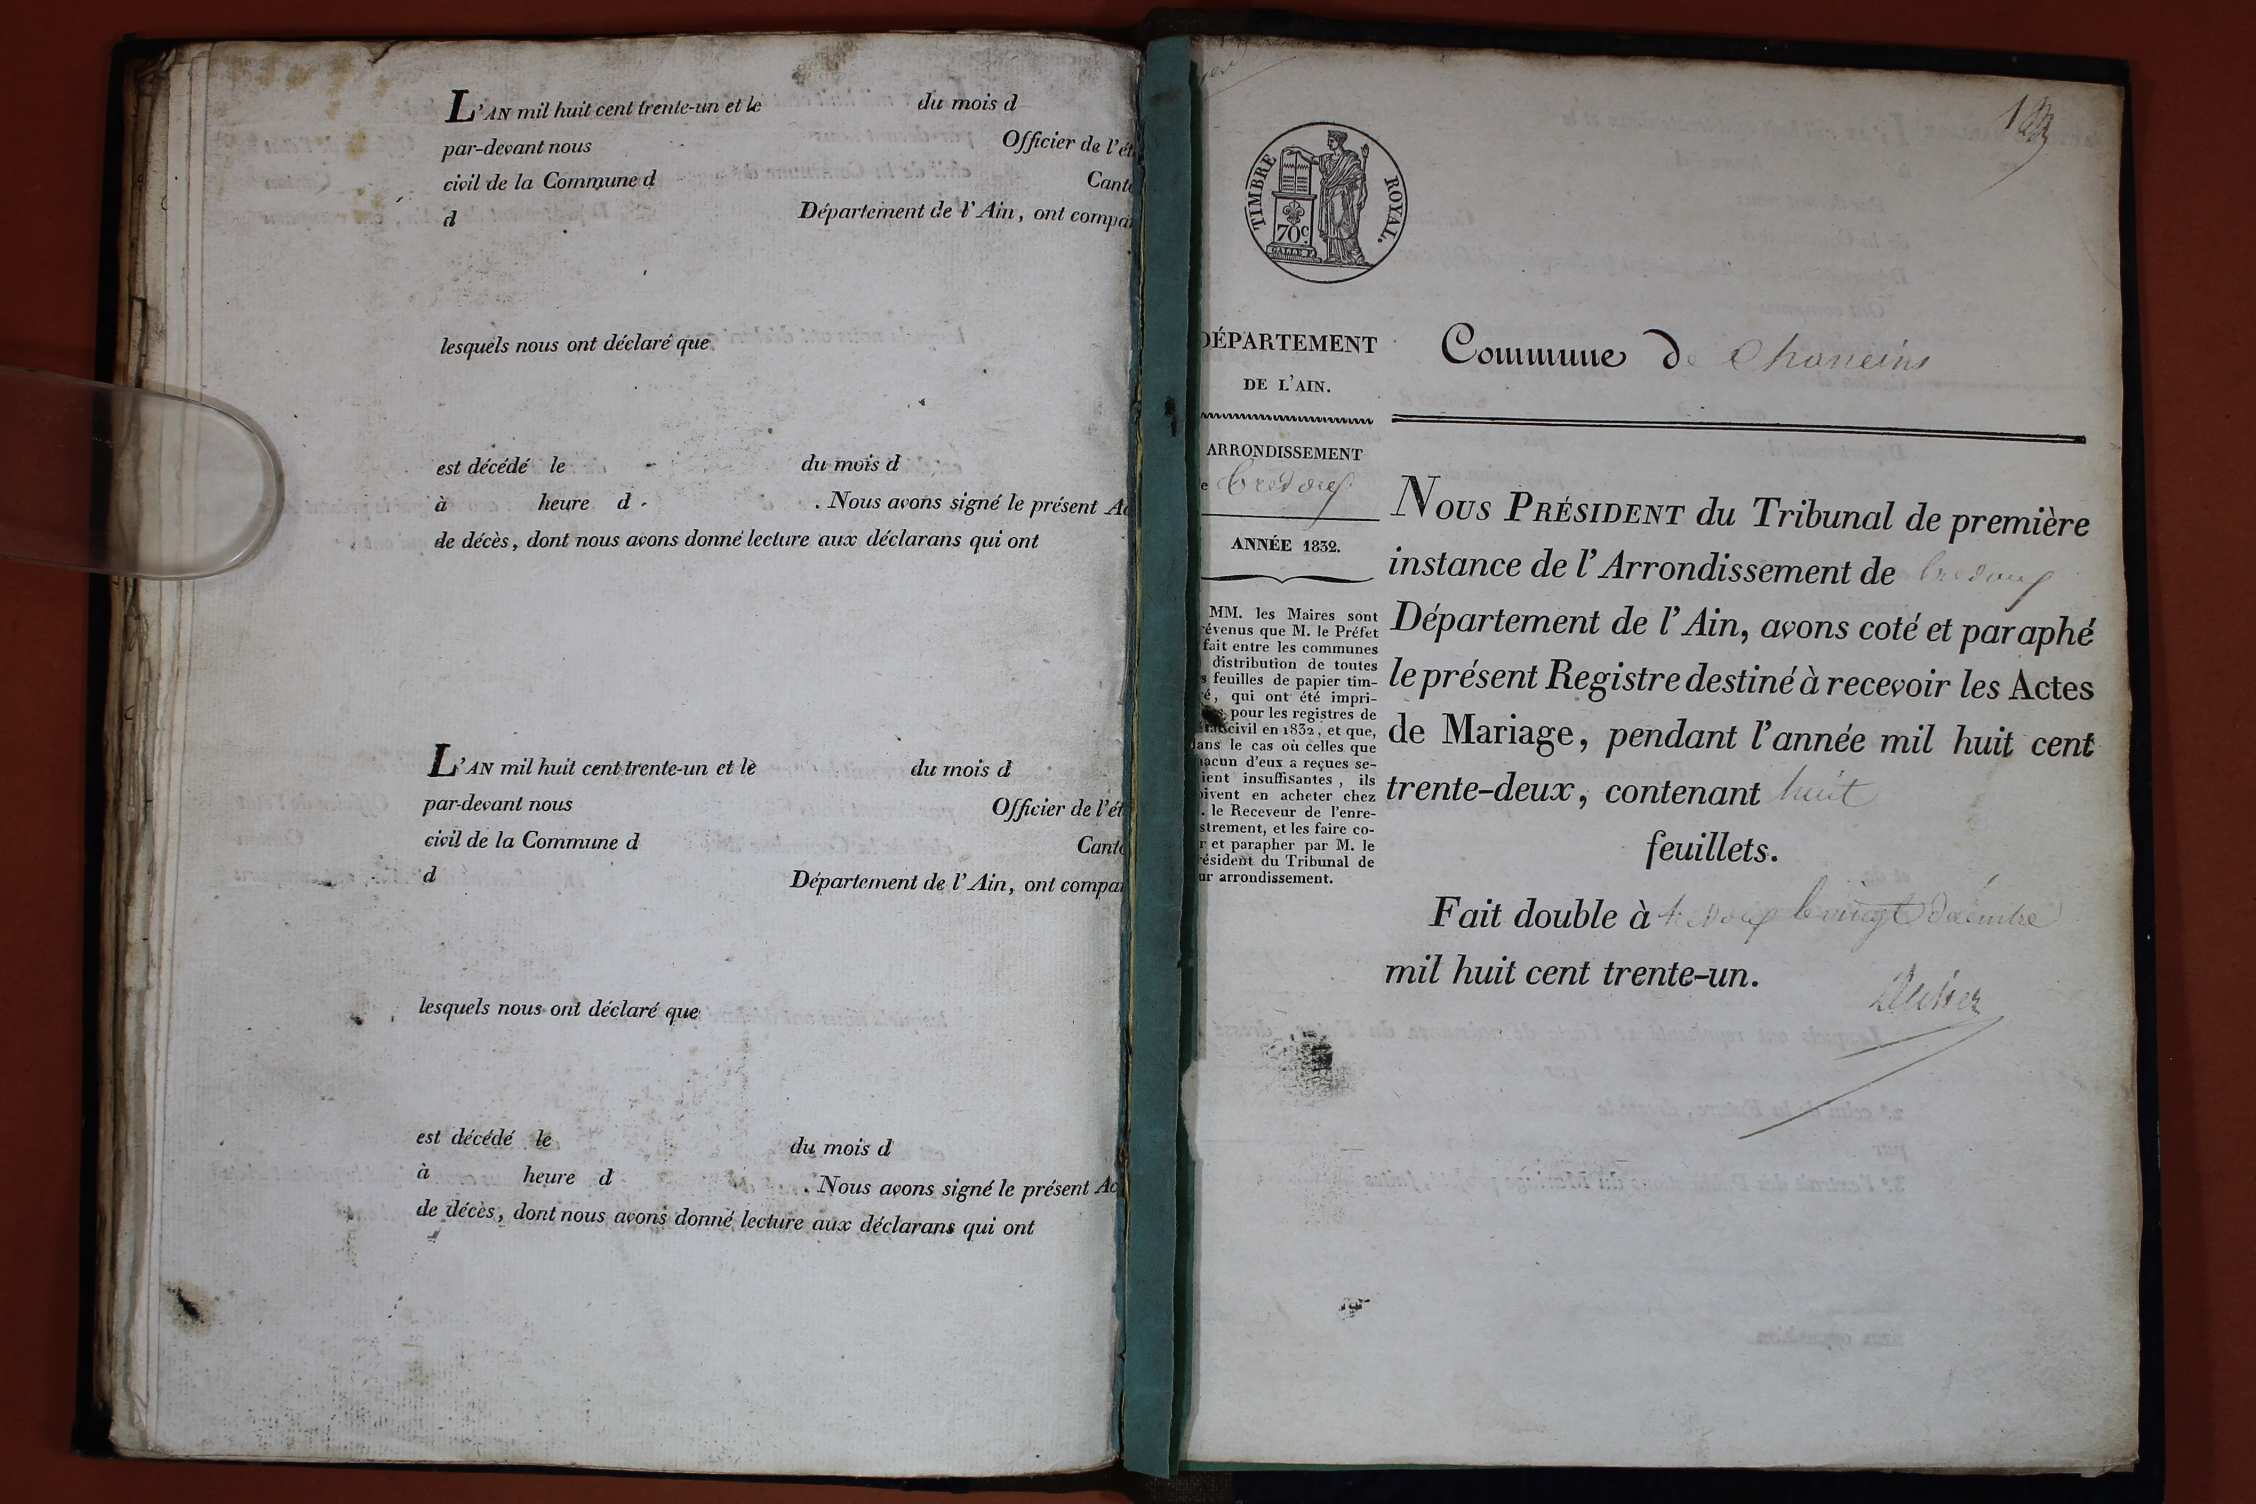 L'AN mil huit cent trente-un et le du mois d
par-devant nous Officier de l'ét
civil de la Commune d Cant
d Département de l'Ain, ont compa
lesquels nous ont déclaré que
est décédé le du mois d
à heure d . Nous avons signé le présent Ac
de décès, dont nous avons donné lecture aux déclarans qui ont
L'AN mil huit cent trente-un et le du mois d
par-devant nous Officier de l'ét
civil de la Commune d Cant
d Département de l'Ain, ont compa
lesquels nous ont déclaré que
est décédé le du mois d
à heure d . Nous avons signé le présent Ac
de décès, dont nous avons donné lecture aux déclarans qui ont
TIMBRE ROYAL.
70c
DÉPARTEMENT
DE L'AIN.
ARRONDISSEMENT
e Trévoux
ANNÉE 1832.
MM. les Maires sont
révenus que M. le Préfet
fait entre les communes
distribution de toutes
s feuilles de papier tim-
é, qui ont été impri-
es pour les registres de
civil en 1832, et que,
ans le cas où celles que
acun d'eux a reçues se-
ient insuffisantes, ils
oivent en acheter chez
. le Receveur de l'enre-
strement, et les faire co-
r et parapher par M. le
résident du Tribunal de
ur arrondissement.
Commune de Chaneins
NOUS PRÉSIDENT du Tribunal de première
instance de l'Arrondissement de Trévoux
Département de l'Ain, avons coté et paraphé
le présent Registre destiné à recevoir les Actes
de Mariage, pendant l'année mil huit cent
trente-deux, contenant huit
feuillets.
Fait double à Trévoux le vingt décembre
mil huit cent trente-un.